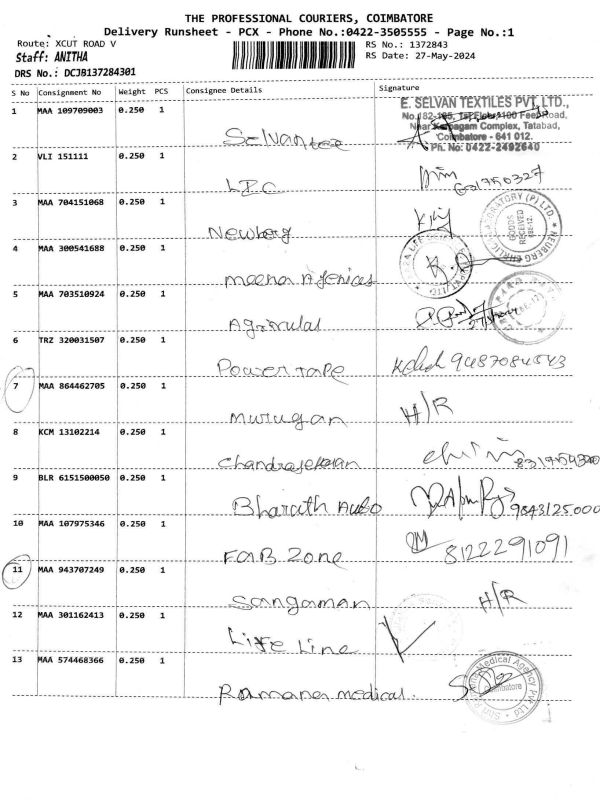 THE PROFESSIONAL COURIERS, COIMBATORE
Delivery Runsheet - PCX - Phone No.:0422-3505555 - Page No.:1
Route: XCUT ROAD V RS No.: 1372843
Staff: ANITHA RS Date: 27-May-2024
DRS No.: DCJB137284301
S No Consignment No Weight PCS Consignee Details Signature
1 MAA 109709003 0.250 1 Selvantex
E. SELVAN TEXTILES PVT. LTD.,
No.182-185, 1st Floor, 100 Feet Road,
Near Karpagam Complex, Tatabad,
Coimbatore - 641 012.
Ph. No: 0422-2492640
2 VLI 151111 0.250 1 LIC
3 MAA 704151068 0.250 1 Newberg
GOODS RECEIVED
4 MAA 300541688 0.250 1 Meena Agenices
5 MAA 703510924 0.250 1
6 TRZ 320031507 0.250 1 Power tape 9487084543
7 MAA 864462705 0.250 1 Murugan H/R
8 KCM 13102214 0.250 1 Chandrasekaran
9 BLR 6151500050 0.250 1 Bharath Auto 9843125000
10 MAA 107975346 0.250 1 FAB Zone 8122291091
11 MAA 943707249 0.250 1 Sangaman H/R
12 MAA 301162413 0.250 1 Life Line
13 MAA 574468366 0.250 1 Ramanan medical.
Medical Agency Pvt Ltd
Coimbatore